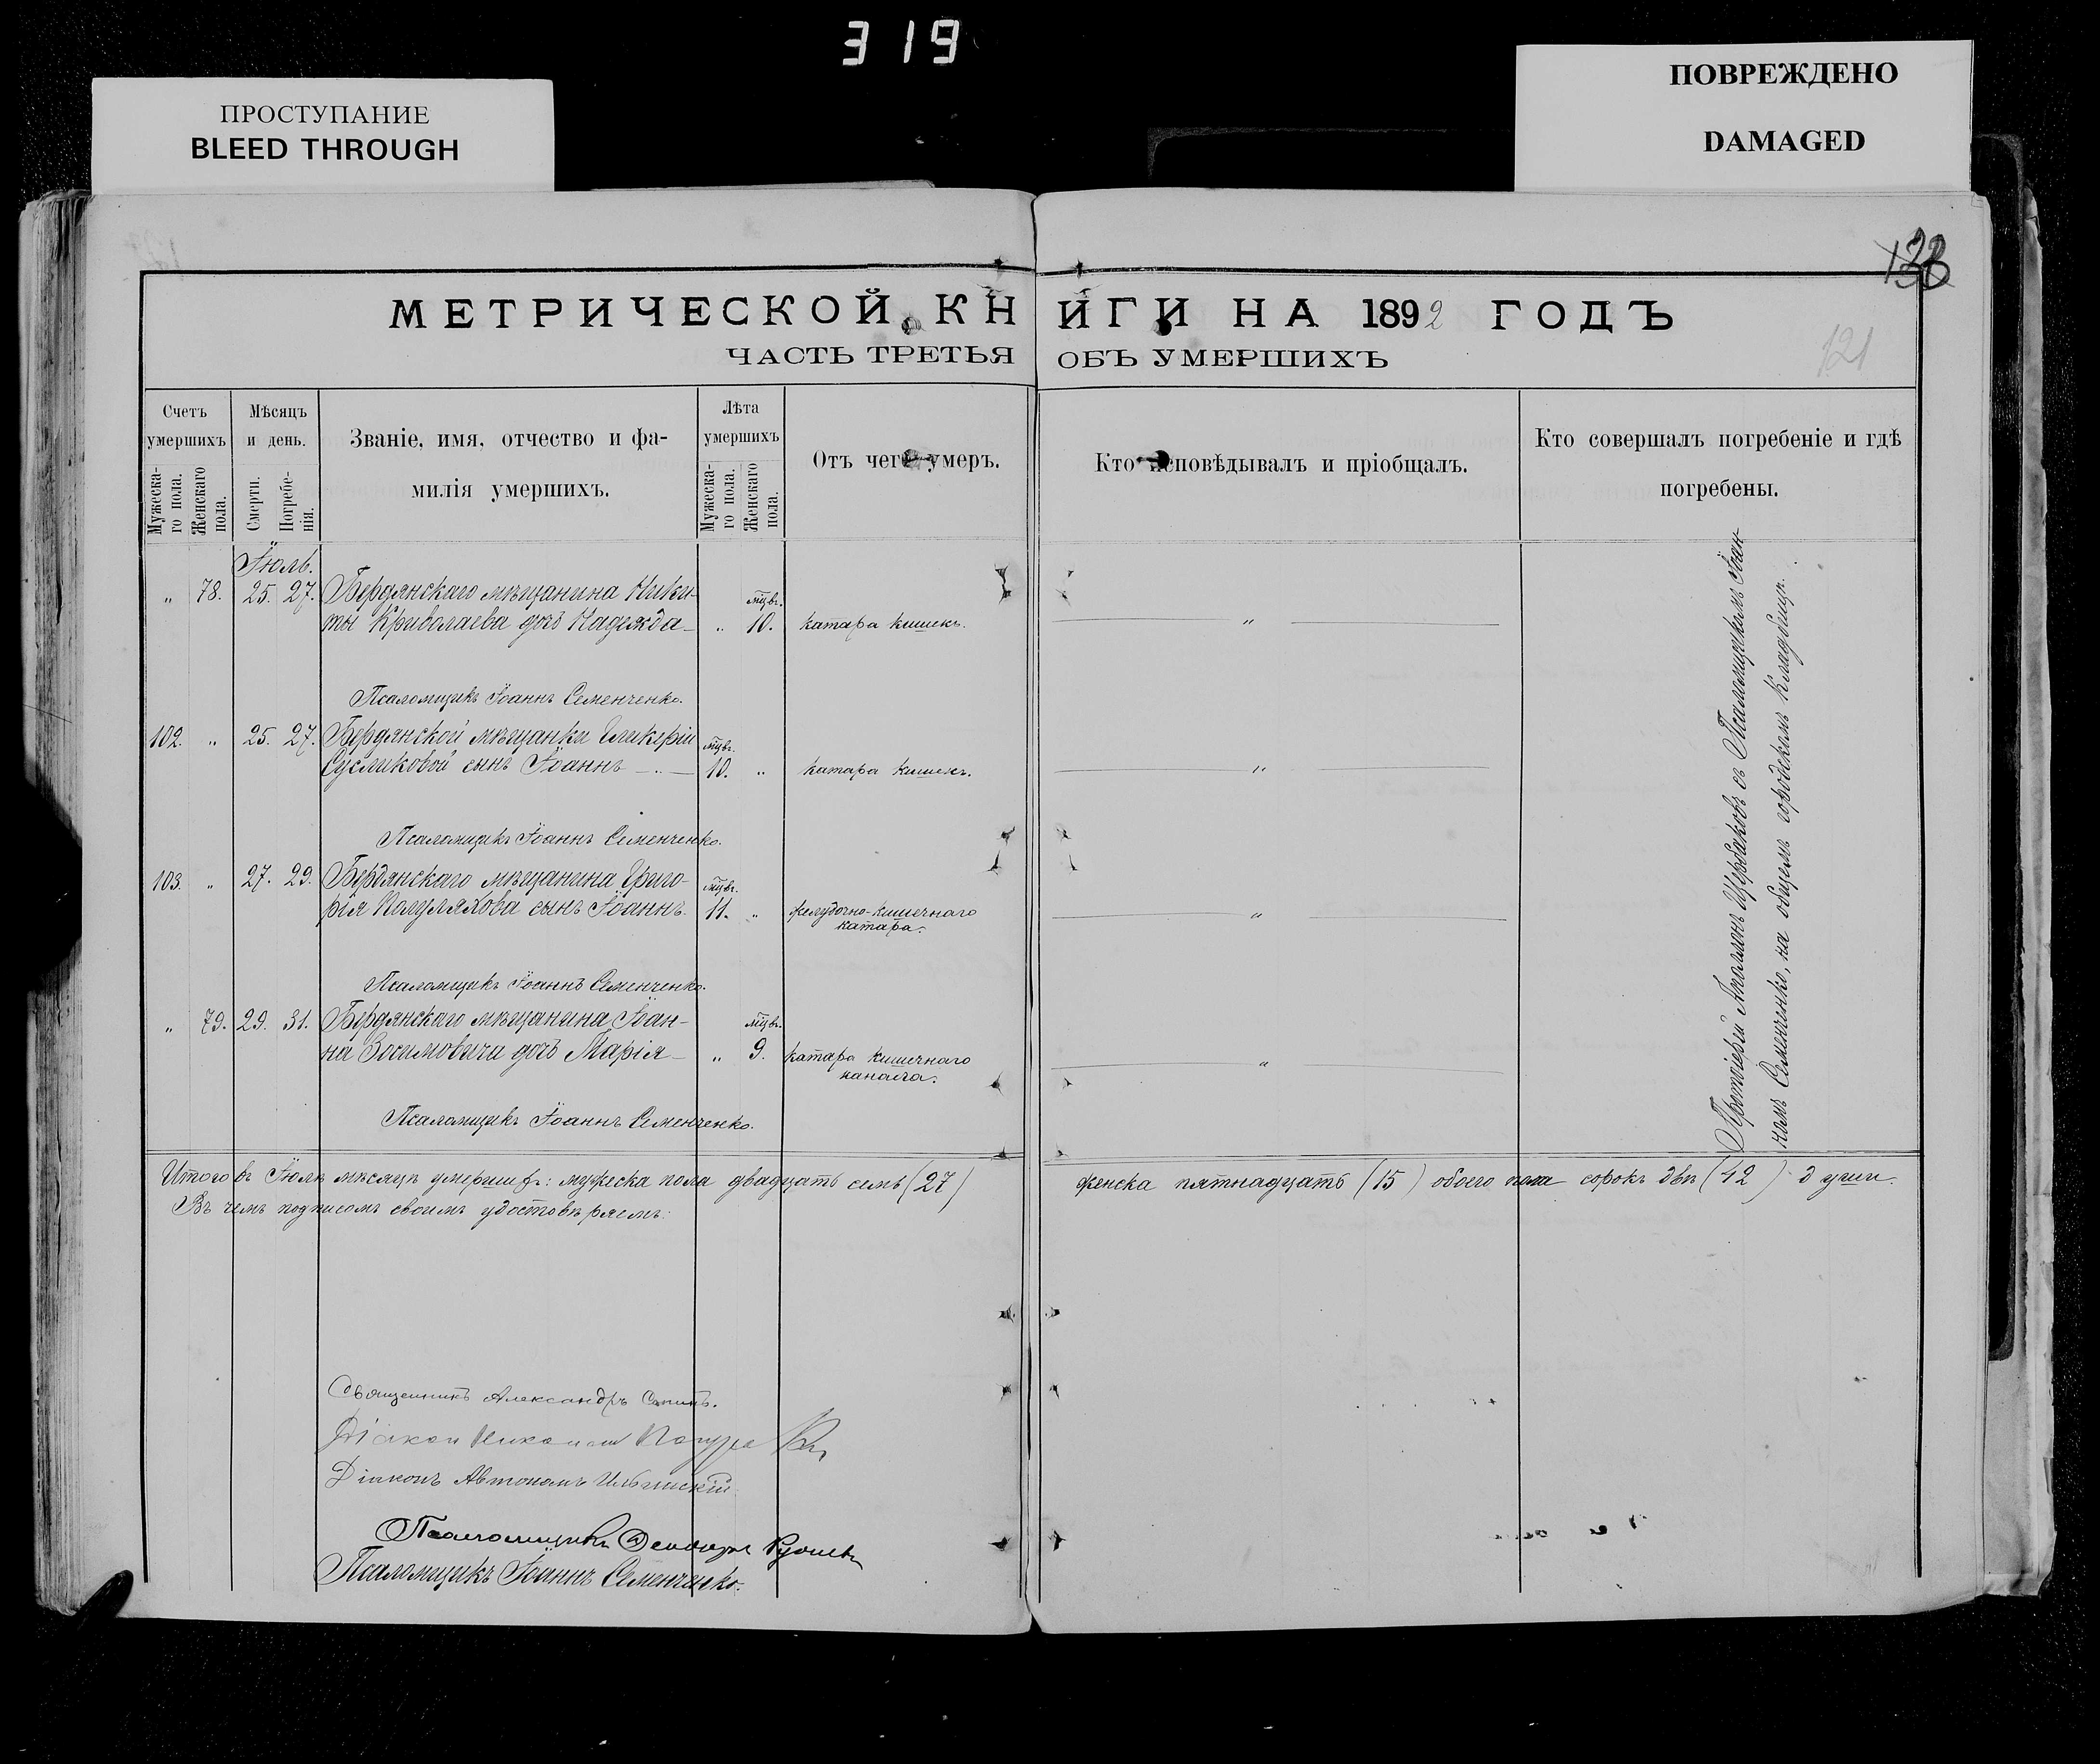 319
ПРОСТУПАНИЕ
BLEED THROUGH
ПОВРЕЖДЕНО
DAMAGED
МЕТРИЧЕСКОЙ КНИГИ НА 1892 ГОДЪ
121
ЧАСТЬ ТРЕТЬЯ ОБЪ УМЕРШИХЪ
Счетъ умершихъ
Мужеска-го пола.
Женскаго пола.
Мѣсяцъ и день.
Смерти.
Погребе-нія.
Званіе, имя, отчество и фа-
милія умершихъ.
Лѣта умершихъ
Мужеска-го пола.
Женскаго пола.
Отъ чего умеръ.
Кто исповѣдывалъ и пріобщалъ.
Кто совершалъ погребеніе и гдѣ
погребены.
Іюль.
„ 78. 25. 27. Бердянскаго мѣщанина Ники- мцвъ.
ты Криволаева дочь Надежда „ 10. катара кишекъ. „
Псаломщикъ Іоаннъ Семенченко.
102. „ 25. 27. Бердянской мѣщанки Гликеріи мцвъ.
Сусликовой сынъ Іоаннъ 10. „ катара кишекъ. „
Псаломщикъ Іоаннъ Семенченко.
103. „ 27. 29. Бердянскаго мѣщанина Григо- мцвъ.
рія Полуляхова сынъ Іоаннъ. 11. „ желудочно-кишечнаго
катара. „
Псаломщикъ Іоаннъ Семенченко.
„ 79. 29. 31. Бердянскаго мѣщанина Іоан- мцвъ.
на Зосимовича дочь Марія „ 9. катара кишечнаго
канала. „
Псаломщикъ Іоаннъ Семенченко.
Протоіерей Щербаковъ съ Псаломщикомъ Іоан-
номъ Семенченко, на общемъ городскомъ кладбищѣ.
Итого въ Іюлѣ мѣсяцѣ умерших: мужеска пола двадцать семь (27) женска пятнадцать (15) обоего пола сорокъ двѣ (42) души.
Въ чемъ подписомъ своимъ удостовѣряемъ:
Священникъ Александръ
Діакон
Діаконъ Автономъ
Псаломщикъ
Псаломщикъ Іоаннъ Семенченко.